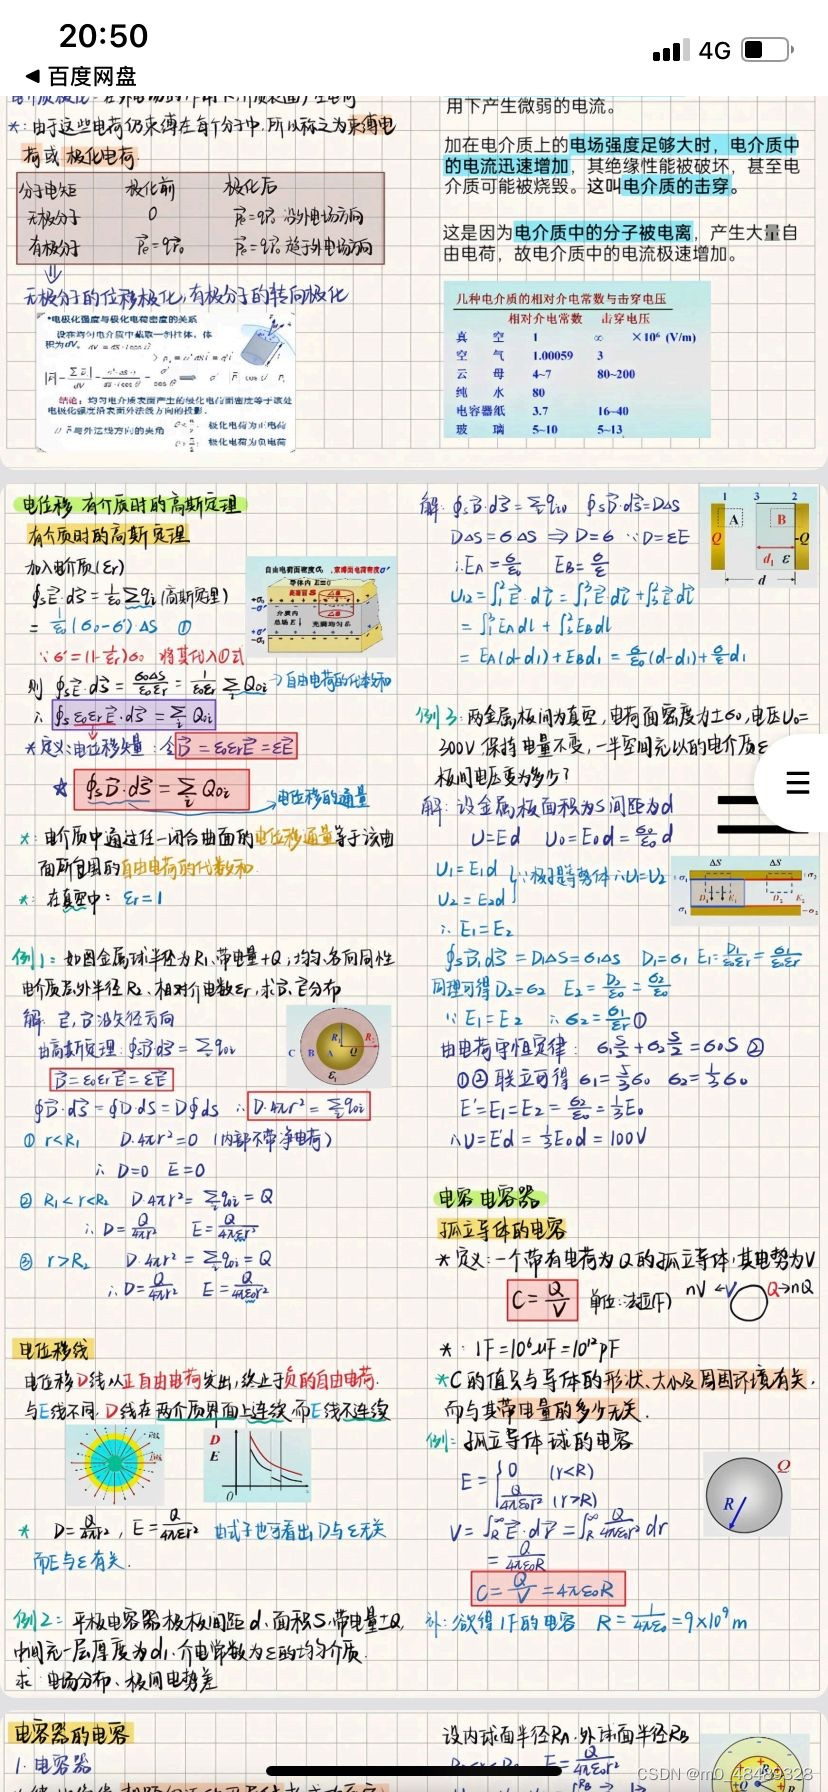 20:50
4G
◀ 百度网盘
*:由于这些电荷仍束缚在每个分子中.所以称之为束缚电
荷或 极化电荷.
分子电矩 极化前 极化后
无极分子 0 沿外电场方向
有极分子 趋于外电场方向
无极分子的位移极化,有极分子的转向极化
•电极化强度与极化电荷密度的关系
设在均匀电介质中截取一斜柱体。体
积为dV。
结论:均匀电介质表面产生的极化电荷面密度等于该处
电极化强度沿表面外法线方向的投影。
极化电荷为正电荷
极化电荷为负电荷
用下产生微弱的电流。
加在电介质上的电场强度足够大时,电介质中
的电流迅速增加,其绝缘性能被破坏,甚至电
介质可能被烧毁。这叫电介质的击穿。
这是因为电介质中的分子被电离,产生大量自
由电荷,故电介质中的电流极速增加。
几种电介质的相对介电常数与击穿电压
相对介电常数 击穿电压
真 空 1 ∞ ×10⁶ (V/m)
空 气 1.00059 3
云 母 4~7 80~200
纯 水 80
电容器纸 3.7 16~40
玻 璃 5~10 5~13
电位移 有介质时的高斯定理
有介质时的高斯定理
加入电介质(εr)
∮s E⃗·dS⃗ = 1/ε₀ Σqi (高斯定理)
= 1/ε₀ (σ₀-σ')ΔS ①
∵ σ'=(1-1/εr)σ₀ 将其代入①式
则 ∮s E⃗·dS⃗ = σ₀ΔS/ε₀εr = 1/ε₀εr Σ Q₀i → 自由电荷的代数和
∴ ∮s ε₀εr E⃗·dS⃗ = Σ Q₀i
*定义:电位移矢量:令 D⃗ = ε₀εrE⃗ = εE⃗
☆ ∮s D⃗·dS⃗ = Σ Q₀i
电位移的通量
*:电介质中通过任一闭合曲面的电位移通量等于该曲
面所包围的自由电荷的代数和.
*:在真空中: εr=1
例1:如图金属球半径为R₁、带电量+Q,均匀、各向同性
电介质层外半径R₂、相对介电数εr,求D⃗、E⃗分布
解: E⃗,D⃗沿矢径方向
由高斯定理: ∮s D⃗·dS⃗ = Σq₀i
D⃗ = ε₀εrE⃗ = εE⃗
∮D⃗·dS⃗ = ∮D·dS = D∮ds ∴ D·4πr² = Σq₀i
① r<R₁ D·4πr²=0 (内部不带净电荷)
∴ D=0 E=0
② R₁<r<R₂ D·4πr² = Σq₀i = Q
∴ D= Q/4πr² E= Q/4πεr²
③ r>R₂ D·4πr² = Σq₀i = Q
∴ D= Q/4πr² E= Q/4πε₀r²
电位移线
电位移D线从正自由电荷发出,终止于负的自由电荷.
与E线不同.D线在两个介质界面上连续.而E线不连续
D
E
0
* D= Q/4πr² , E= Q/4πεr² 由式子也可看出D与ε无关
而E与ε有关.
例2:平板电容器极板间距d、面积S、带电量±Q,
中间充一层厚度为d₁、介电常数为ε的均匀介质.
求:电场分布、极间电势差
解: ∮s D⃗·dS⃗ = Σq₀ ∮s D⃗·dS⃗=DΔS
DΔS = σΔS ⇒ D=σ ∵D=εE
∴ EA = σ/ε₀ EB = σ/ε
U₁₂ = ∫₁² E⃗·dl⃗ = ∫₁³ E⃗·dl⃗ + ∫₃² E⃗·dl⃗
= ∫₁³ EAdl + ∫₃² EBdl
= EA(d-d₁)+EBd₁ = σ/ε₀ (d-d₁)+ σ/ε d₁
1 3 2
A B
Q -Q
d₁ ε
d
例3:两金属板间为真空,电荷面密度为±σ₀,电压U₀=
300V.保持电量不变,一半空间充以的电介质ε
板间电压变为多少?
解:设金属板面积为S 间距为d
U=Ed U₀=E₀d= σ₀/ε₀ d
U₁=E₁d
U₂=E₂d ∵极板是等势体 ∴U₁=U₂
∴ E₁=E₂
∮s D⃗₁dS⃗ = D₁ΔS=σ₁ΔS D₁=σ₁ E₁= D₁/ε₀εr = σ₁/ε₀εr
同理可得D₂=σ₂ E₂= D₂/ε₀ = σ₂/ε₀
∵ E₁=E₂ ∴ σ₂= σ₁/εr ①
由电荷守恒定律: σ₁ S/2 + σ₂ S/2 = σ₀S ②
①②联立可得 σ₁= 5/3 σ₀ σ₂= 1/3 σ₀
E'=E₁=E₂= σ₂/ε₀ = 1/3 E₀
∴U=E'd= 1/3 E₀d=100V
电容 电容器
孤立导体的电容
*定义:一个带有电荷为Q的孤立导体,其电势为V
C = Q/V 单位:法拉(F) nV ←V Q→nQ
*: 1F=10⁶μF=10¹²pF
*C的值只与导体的形状、大小及周围环境有关.
而与其带电量的多少无关.
例:孤立导体球的电容
E= { 0 (r<R)
Q/4πε₀r² (r>R)
V= ∫R^∞ E⃗·dr⃗ = ∫R^∞ Q/4πε₀r² dr
= Q/4πε₀R
C= Q/V =4πε₀R
R
Q
补:欲得1F的电容 R= 1/4πε₀ =9×10⁹m
电容器的电容
1.电容器
设内球面半径RA.外球面半径RB
CSDN @m0_48489328